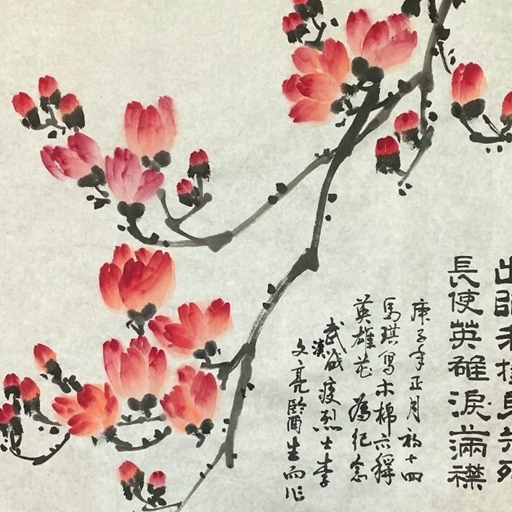 出師未捷身先死
長使英雄淚滿襟
庚子年正月初十四
馬琪寫木棉亦稱
英雄花為紀念
武漢戰疫烈士李
文亮醫生而作